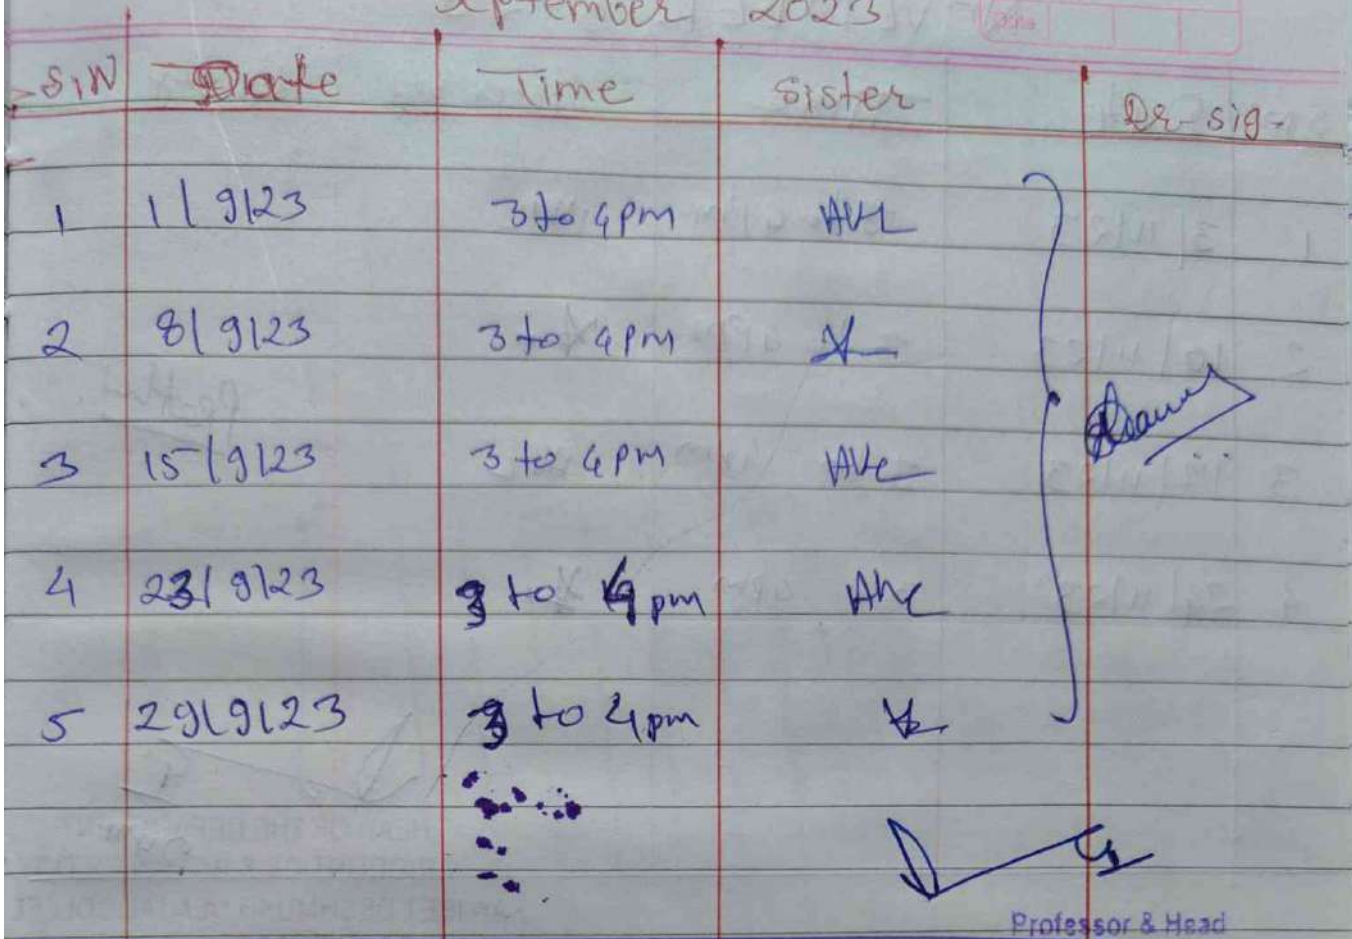 September 2023
S.N Date Time Sister Dr-sig-
1 1/9/23 3 to 4pm
2 8/9/23 3 to 4pm
3 15/9/23 3 to 4pm
4 23/9/23 3 to 4pm
5 29/9/23 3 to 4pm
Professor & Head